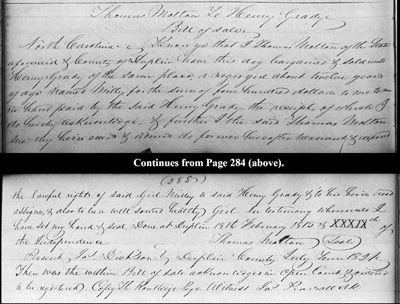 Thomas Molton To Henry Grady
Bill of sale
North Carolina Know ye that I Thomas Molton of the State
aforesaid & County of Duplin have this day bargained & sold unto
Henry Grady of the same place, a negro girl about twelve years
of age Named Milly for the sum of four hundred dollars to me
in hand paid by the said Henry Grady, the receipt of which I
do hereby acknowledge, & further I the said Thomas Molton
me my heirs & do forever hereafter warrant &
Continues from Page 284 (above).
(285)
the lawful rights of said Girl Milly to said Henry Grady & to his heirs and
assigns, & also to be a well sound healthy Girl. In testimony whereof I
have set my hand & seal. Done at Duplin 18th February 1815 & XXXIXth of
the Independence. Thomas Molton (Seal)
Present, Jas Dickson Duplin County July Term
Then was the within Bill of Sale acknowledged in Open Court & ordered
to be registered. Copy Witness Jas Pearsall Clk